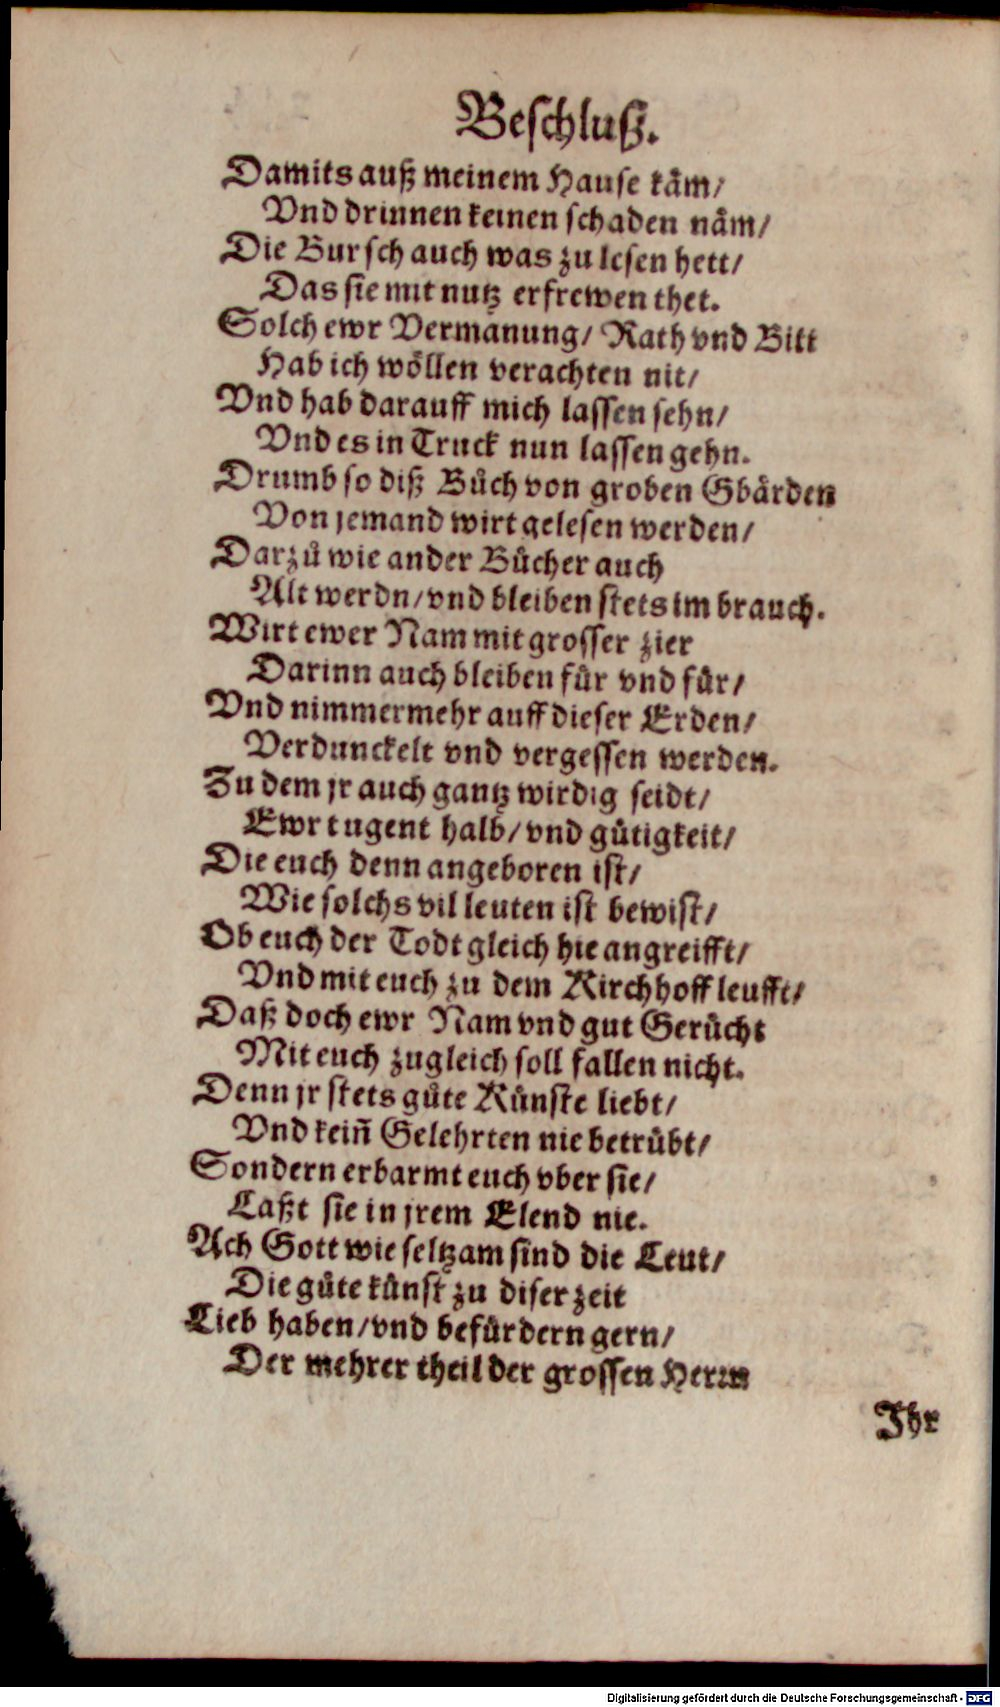 Beschluß.
Damits auß meinem Hause kåm/
Vnd drinnen keinen schaden nåm/
Die Bursch auch was zu lesen hett/
Das sie mit nutz erfrewen thet.
Solch ewr Vermanung/ Rath vnd Bitt
Hab ich wöllen verachten nit/
Vnd hab darauff mich lassen sehn/
Vnd es in Truck nun lassen gehn.
Drumb so diß Bůch von groben Gbården
Von jemand wirt gelesen werden/
Darzů wie ander Bůcher auch
Alt werdn/ vnd bleiben stets im brauch.
Wirt ewer Nam mit grosser zier
Darinn auch bleiben fůr vnd fůr/
Vnd nimmermehr auff dieser Erden/
Verdunckelt vnd vergessen werden.
Zu dem jr auch gantz wirdig seidt/
Ewr tugent halb/ vnd gůtigkeit/
Die euch denn angeboren ist/
Wie solchs vil leuten ist bewist/
Ob euch der Todt gleich hie angreifft/
Vnd mit euch zu dem Kirchhoff leufft/
Daß doch ewr Nam vnd gut Gerůcht
Mit euch zugleich soll fallen nicht.
Denn jr stets gůte Kůnste liebt/
Vnd keiñ Gelehrten nie betrůbt/
Sondern erbarmt euch vber sie/
Laßt sie in jrem Elend nie.
Ach Gott wie seltzam sind die Leut/
Die gůte kůnst zu diser zeit
Lieb haben/ vnd befůrdern gern/
Der mehrer theil der grossen Herrn
Ihr
Digitalisierung gefördert durch die Deutsche Forschungsgemeinschaft - DFG